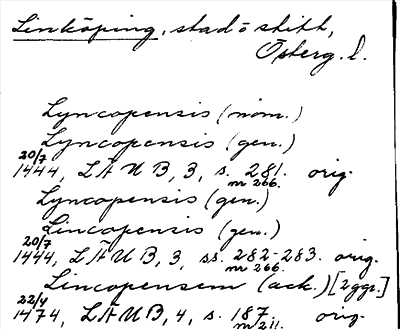 Linköping, stad o stift,
Österg. l.
Lyncopensis (nom.)
Lyncopensis (gen.)
20/7
1444, LÄUB, 3, s. 281. orig.
nr 266.
Lyncopensis (gen.)
Lincopensis (gen.)
20/7
1444, LÄUB, 3, ss. 282-283. orig.
nr 266.
Lincopensem (ack.) [2ggr.]
22/4
1474, LÄUB, 4, s. 187. orig.
nr 211.